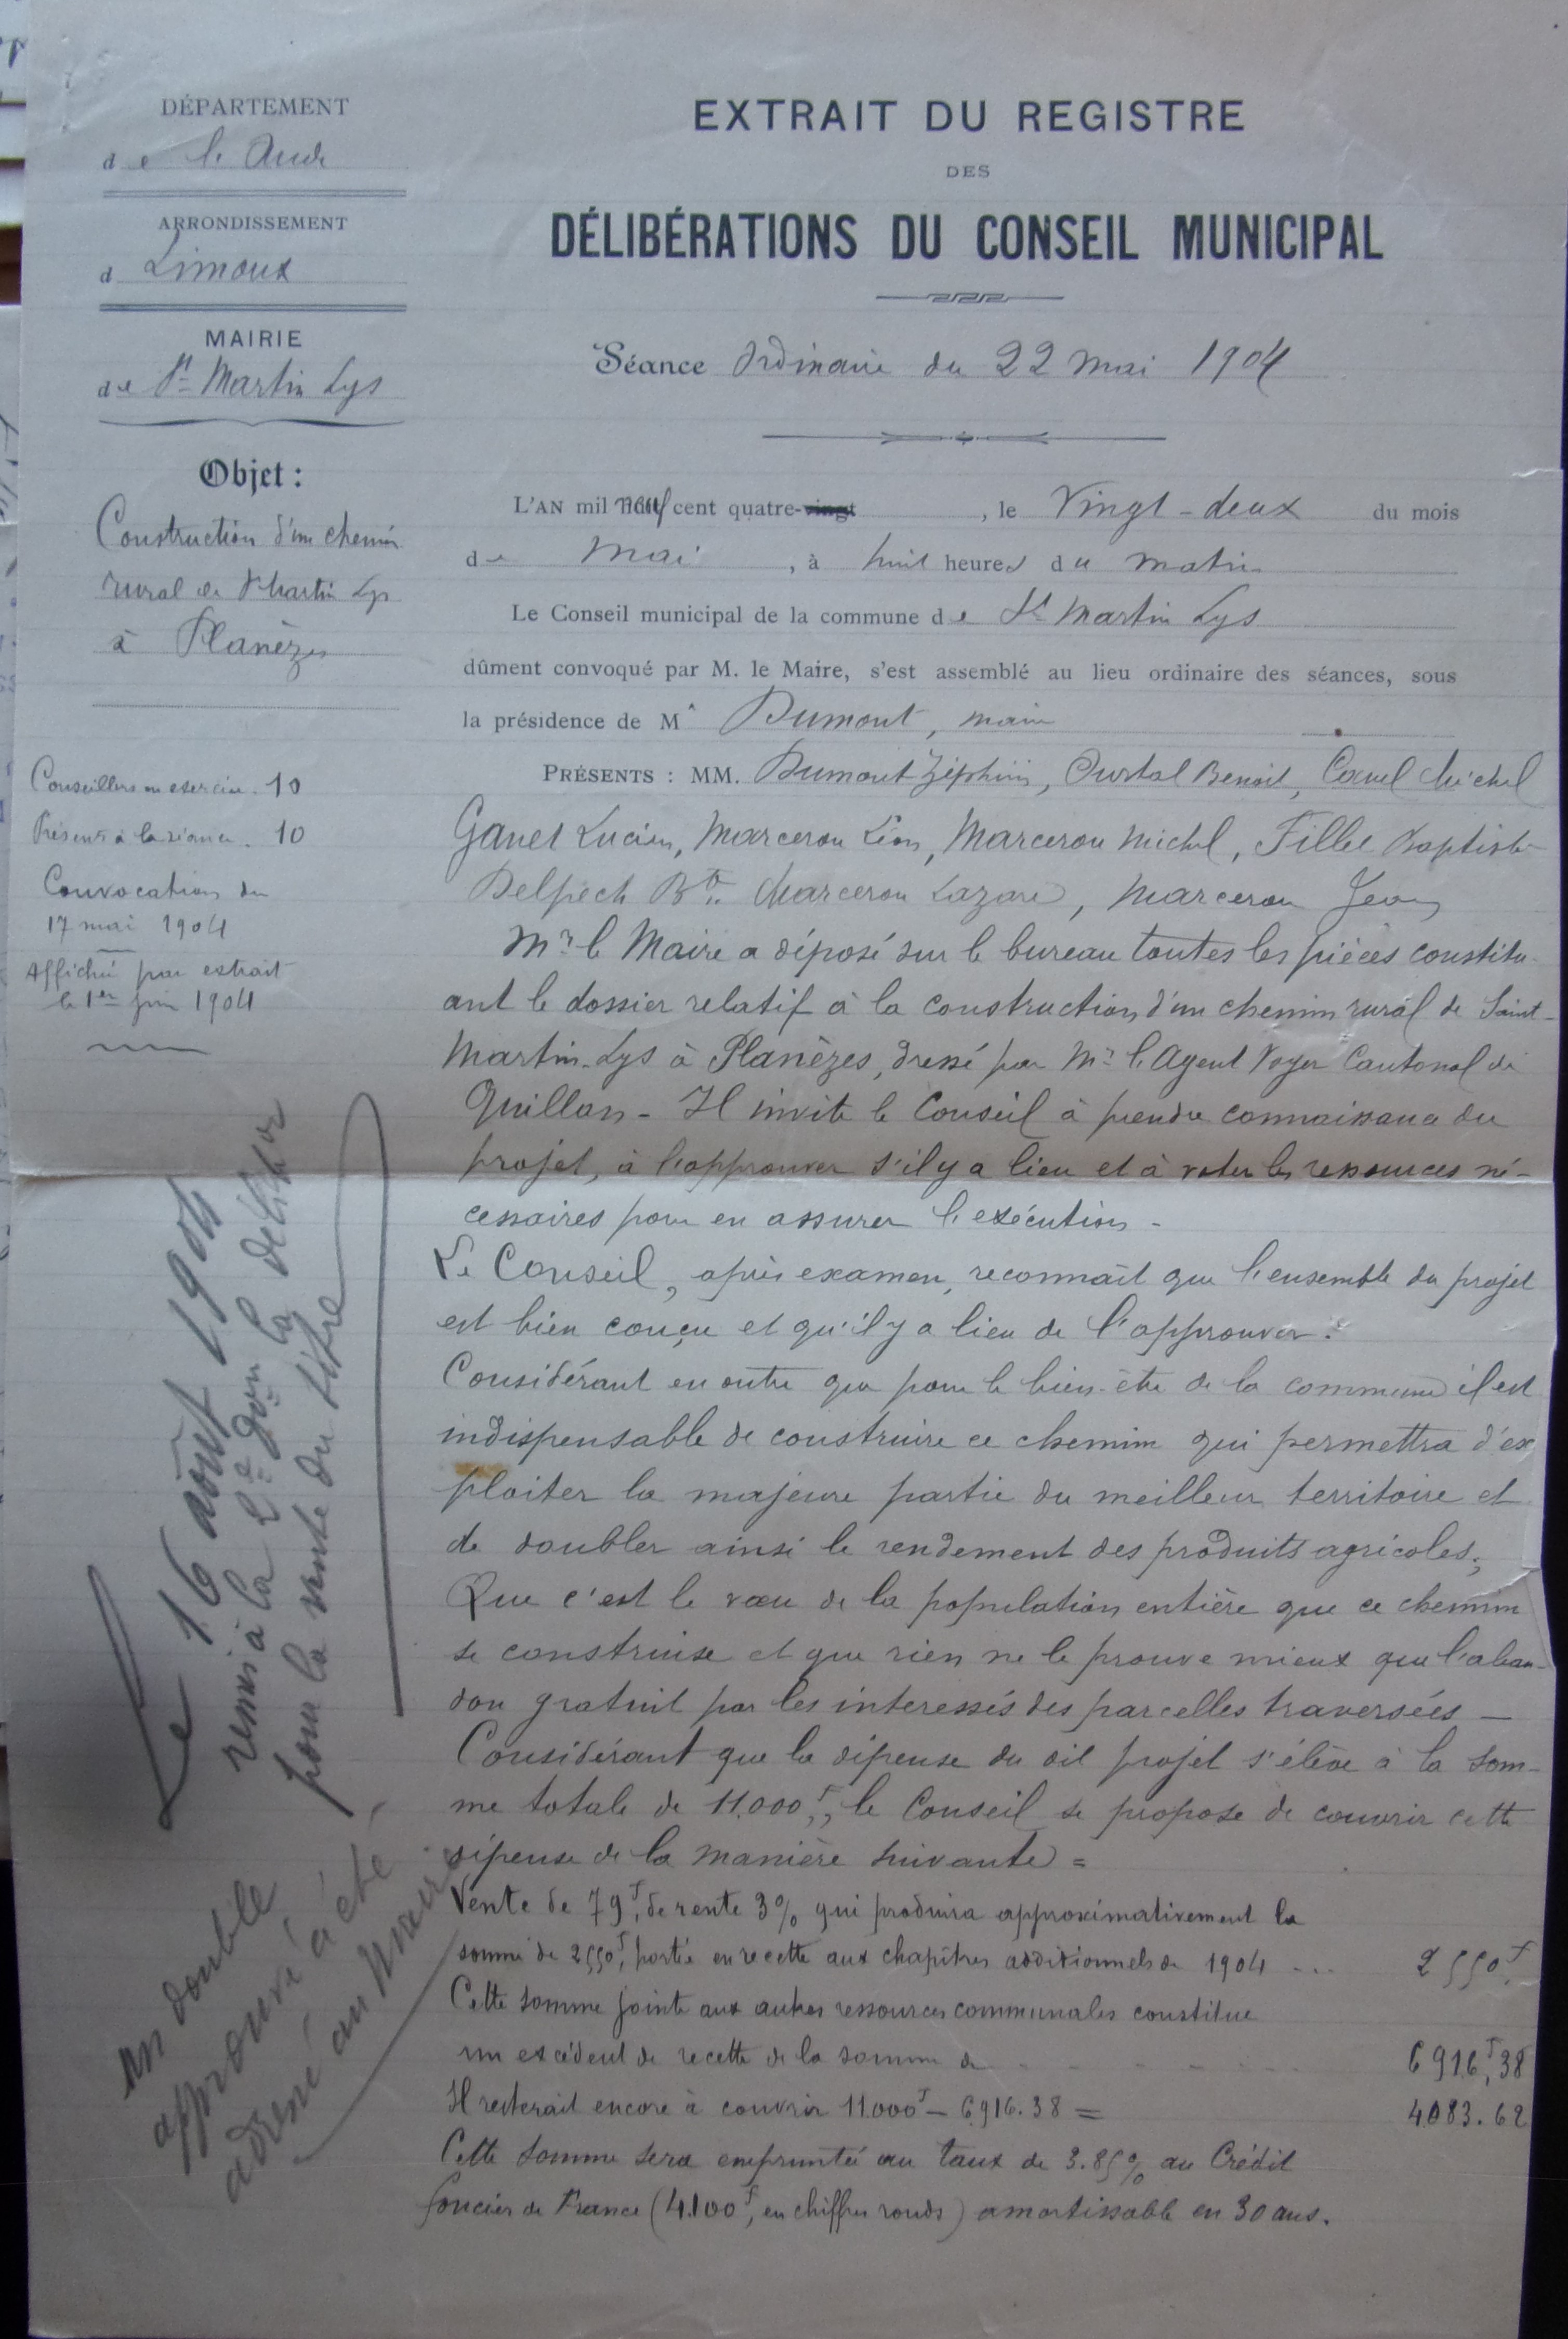 DÉPARTEMENT
de l'Aude
ARRONDISSEMENT
d Limoux
MAIRIE
de St Martin Lys
Objet :
Construction d'un chemin
rural de St Martin Lys
à Planèzes
Conseillers en exercice . 10
Présents à la séance . 10
Convocation du
17 mai 1904
Affiché par extrait
le 1er juin 1904
EXTRAIT DU REGISTRE
DES
DÉLIBÉRATIONS DU CONSEIL MUNICIPAL
Séance Ordinaire du 22 mai 1904
L'AN mil neuf cent quatre-vingt , le Vingt-deux du mois
de Mai , à huit heures du matin
Le Conseil municipal de la commune de St Martin Lys
dûment convoqué par M. le Maire, s'est assemblé au lieu ordinaire des séances, sous
la présidence de Mr Dumont, maire
PRÉSENTS : MM. Dumont Zéphirin, Ourtal Benoit, Michel
Lucien, Marcerou Léon, Marcerou Michel, Baptiste
Delpech Bte Marcerou Lazare, Marcerou Jean
Mr le Maire a déposé sur le bureau toutes les pièces constitu-
ant le dossier relatif à la construction d'un chemin rural de Saint-
Martin-Lys à Planèzes, dressé par Mr l'Agent Voyer Cantonal de
Quillan - Il invite le Conseil à prendre connaissance du
projet, à l'approuver s'il y a lieu et à voter les ressources né-
cessaires pour en assurer l'exécution -
Le Conseil, après examen, reconnaît que l'ensemble du projet
est bien conçu et qu'il y a lieu de l'approuver.
Considérant en outre que pour le bien-être de la commune il est
indispensable de construire ce chemin qui permettra d'ex
ploiter la majeure partie du meilleur territoire et
de doubler ainsi le rendement des produits agricoles ;
Que c'est le vœu de la population entière que ce chemin
se construise et que rien ne le prouve mieux que l'aban-
don gratuit par les interessés des parcelles traversées -
Considérant que la dépense du dit projet s'élève à la som-
me totale de 11.000f,, le Conseil se propose de couvrir cette
dépense de la manière suivante =
Vente de 79f, de rente 3% qui produira approximativement la
somme de 2550f, portée en recette aux chapitres additionnels de 1904 ... 2550f,
Cette somme jointe aux autres ressources communales constitue
un excédent de recette de la somme de 6916f,38
Il resterait encore à couvrir 11.000f - 6.916.38 = 4.083.62
Cette somme sera empruntée au taux de 3.85% au Crédit
foncier de France (4.100f, en chiffres ronds) amortissable en 30 ans.
Le 16 août 1904
remis à la 2e don la délibon
pour la vente du titre
un double
approuvé a été
adressé au Maire